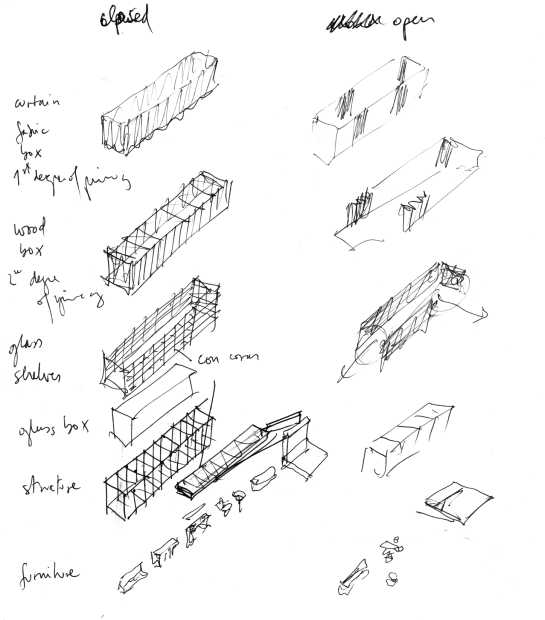 closed open
curtain
fabric
box
1st degree of privacy
wood
box
2nd degree
of privacy
glass
shelves
glass box
structure
furniture